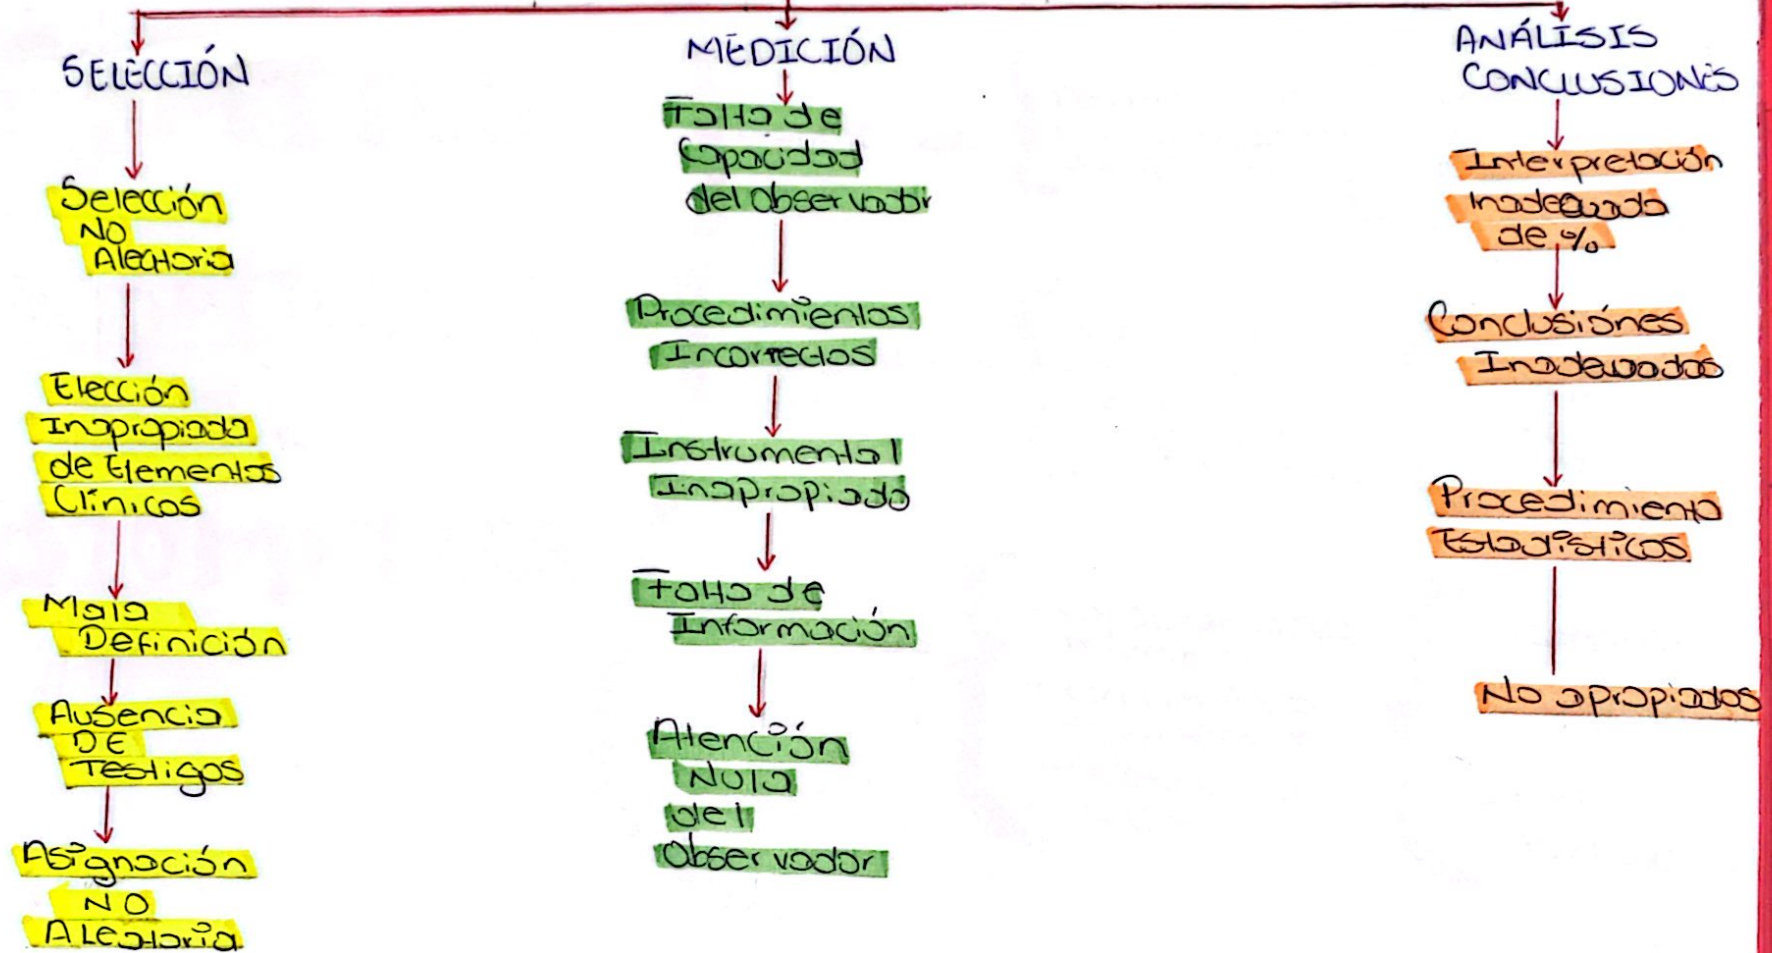 SELECCIÓN
Selección
NO
Aleatoria
Elección
Inapropiada
de Elementos
Clínicos
Mala
Definición
Ausencia
DE
Testigos
Asignación
NO
ALeatoria
MEDICIÓN
Falta de
Capacidad
del Observador
Procedimientos
Incorrectos
Instrumental
Inapropiado
Falta de
Información
Atención
Nula
del
Observador
ANÁLISIS
CONCLUSIONES
Interpretación
Inadecuada
de %
Conclusiónes
Inadecuadas
Procedimiento
Estadísticos
No apropiados